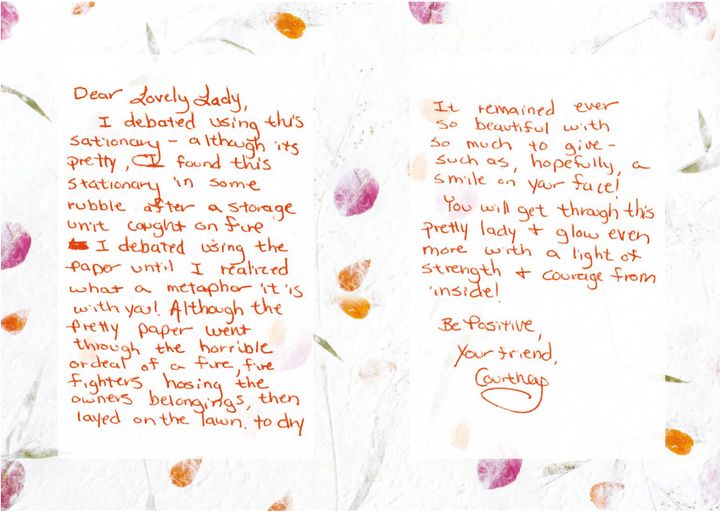 Dear Lovely Lady,
I debated using this
sationary - although its
pretty, I found this
stationary in some
rubble after a storage
unit caught on fire
I debated using the
paper until I realized
what a metaphor it is
with you! Although the
pretty paper went
through the horrible
ordeal of a fire, fire
fighters hosing the
owners belongings, then
layed on the lawn. to dry
It remained ever
so beautiful with
so much to give -
such as, hopefully, a
smile on your face!
You will get through this
pretty lady & glow even
more with a light of
strength & courage from
inside!
Be Positive,
Your friend,